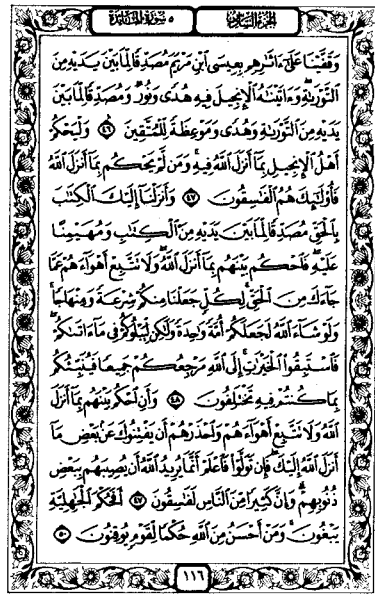 الجزء السادس ٥ سورة المائدة
وَقَفَّيْنَا عَلَىٰٓ ءَاثَٰرِهِم بِعِيسَى ٱبْنِ مَرْيَمَ مُصَدِّقًا لِّمَا بَيْنَ يَدَيْهِ مِنَ
ٱلتَّوْرَىٰةِ ۖ وَءَاتَيْنَٰهُ ٱلْإِنجِيلَ فِيهِ هُدًى وَنُورٌ وَمُصَدِّقًا لِّمَا بَيْنَ
يَدَيْهِ مِنَ ٱلتَّوْرَىٰةِ وَهُدًى وَمَوْعِظَةً لِّلْمُتَّقِينَ ٤٦ وَلْيَحْكُمْ
أَهْلُ ٱلْإِنجِيلِ بِمَآ أَنزَلَ ٱللَّهُ فِيهِ ۚ وَمَن لَّمْ يَحْكُم بِمَآ أَنزَلَ ٱللَّهُ
فَأُو۟لَٰٓئِكَ هُمُ ٱلْفَٰسِقُونَ ٤٧ وَأَنزَلْنَآ إِلَيْكَ ٱلْكِتَٰبَ
بِٱلْحَقِّ مُصَدِّقًا لِّمَا بَيْنَ يَدَيْهِ مِنَ ٱلْكِتَٰبِ وَمُهَيْمِنًا
عَلَيْهِ ۖ فَٱحْكُم بَيْنَهُم بِمَآ أَنزَلَ ٱللَّهُ ۖ وَلَا تَتَّبِعْ أَهْوَآءَهُمْ عَمَّا
جَآءَكَ مِنَ ٱلْحَقِّ ۚ لِكُلٍّ جَعَلْنَا مِنكُمْ شِرْعَةً وَمِنْهَاجًا ۚ
وَلَوْ شَآءَ ٱللَّهُ لَجَعَلَكُمْ أُمَّةً وَٰحِدَةً وَلَٰكِن لِّيَبْلُوَكُمْ فِى مَآ ءَاتَىٰكُمْ ۖ
فَٱسْتَبِقُوا۟ ٱلْخَيْرَٰتِ ۚ إِلَى ٱللَّهِ مَرْجِعُكُمْ جَمِيعًا فَيُنَبِّئُكُم
بِمَا كُنتُمْ فِيهِ تَخْتَلِفُونَ ٤٨ وَأَنِ ٱحْكُم بَيْنَهُم بِمَآ أَنزَلَ
ٱللَّهُ وَلَا تَتَّبِعْ أَهْوَآءَهُمْ وَٱحْذَرْهُمْ أَن يَفْتِنُوكَ عَنۢ بَعْضِ مَآ
أَنزَلَ ٱللَّهُ إِلَيْكَ ۖ فَإِن تَوَلَّوْا۟ فَٱعْلَمْ أَنَّمَا يُرِيدُ ٱللَّهُ أَن يُصِيبَهُم بِبَعْضِ
ذُنُوبِهِمْ ۗ وَإِنَّ كَثِيرًا مِّنَ ٱلنَّاسِ لَفَٰسِقُونَ ٤٩ أَفَحُكْمَ ٱلْجَٰهِلِيَّةِ
يَبْغُونَ ۚ وَمَنْ أَحْسَنُ مِنَ ٱللَّهِ حُكْمًا لِّقَوْمٍ يُوقِنُونَ ٥٠
١١٦